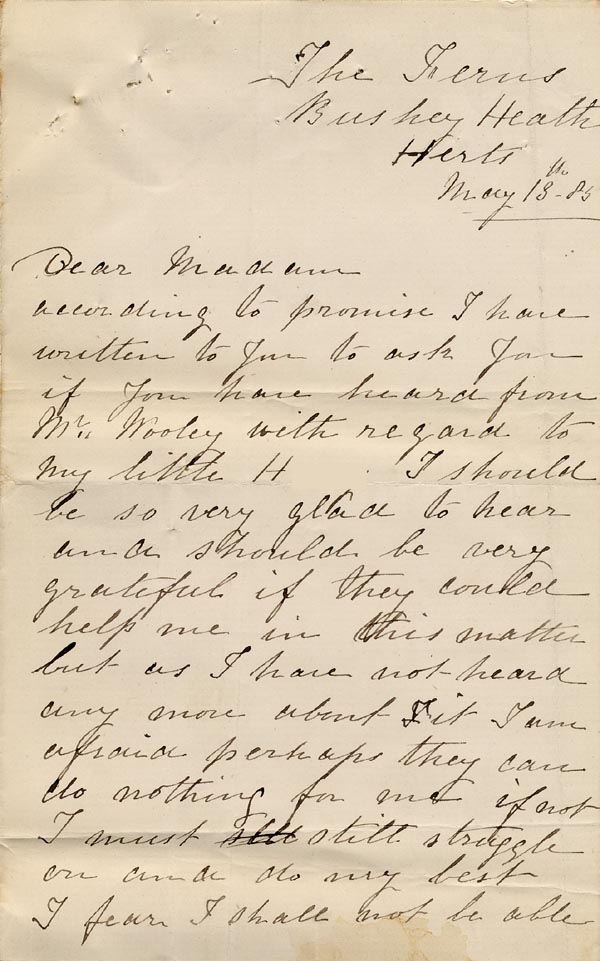 The Ferns
Bushey Heath
Herts
May 13th - 85
Dear Madam
according to promise I have
written to You to ask You
if You have heard from
Mr. Wooley with regard to
my little H I should
be so very glad to hear
and should be very
grateful if they could
help me in this matter
but as I have not heard
any more about it I am
afraid perhaps they can
do nothing for me if not
I must still struggle
on and do my best
I fear I shall not be able